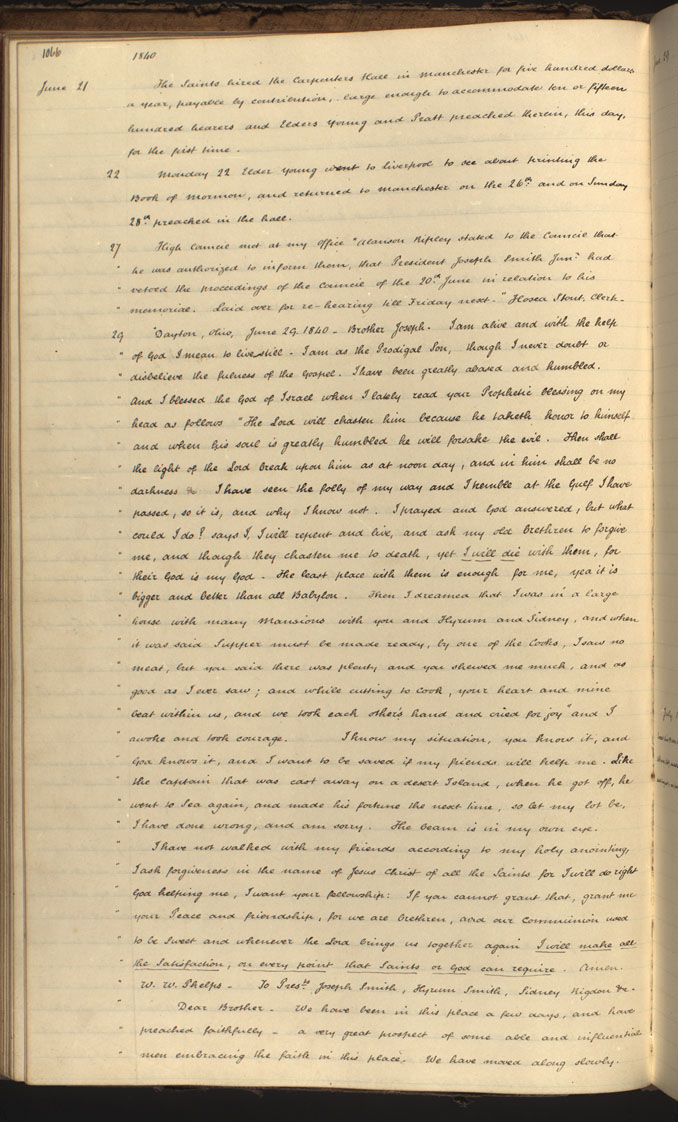 1066
1840
June 21 The Saints hired the Carpenters Hall in Manchester for five hundred dollars
a year, payable by contribution, large enough to accommodate ten or fifteen
hundred hearers and Elders Young and Pratt preached therein, this day,
for the first time.
22 Monday 22 Elder Young went to Liverpool to see about printing the
Book of Mormon, and returned to Manchester on the 26th and on Sunday
28th preached in the hall.
27 High Council met at my office "Alanson Ripley stated to the Council that
" he was authorized to inform them, that President Joseph Smith Junr had
" vetoed the proceedings of the Council of the 20th June in relation to his
" memorial. Laid over for re-hearing till Friday next-" Hosea Stout, Clerk-
29 "Dayton, Ohio, June 29. 1840 - Brother Joseph. I am alive and with the help
" of God I mean to live still. I am as the Prodigal Son, though I never doubt or
" disbelieve the fulness of the Gospel. I have been greatly abased and humbled.
" And I blessed the God of Israel when I lately read your Prophetic blessing on my
" head as follows "The Lord will chasten him because he taketh honor to himself
" and when his soul is greatly humbled he will forsake the evil. Then shall
" the light of the Lord break upon him as at noon day, and in him shall be no
" darkness &c I have seen the folly of my way and I tremble at the Gulf I have
" passed, so it is, and why I know not. I prayed and God answered, but what
" could I do? says I, I will repent and live, and ask my old Brethren to forgive
" me, and though they chasten me to death, yet I will die with them, for
" their God is my God - The least place with them is enough for me, yea it is
" bigger and better than all Babylon. Then I dreamed that I was in a large
" house with many Mansions with you and Hyrum and Sidney, and when
" it was said Supper must be made ready, by one of the Cooks, I saw no
" meat, but you said there was plenty and you shewed me much, and as
" good as I ever saw; and while cutting to cook, your heart and mine
" beat within us, and we took each other's hand and cried for joy" and I
" awoke and took courage. I know my situation, you know it, and
" God knows it, and I want to be saved if my friends will help me. Like
" the Captain that was cast away on a desert Island, when he got off, he
" went to Sea again, and made his fortune the next time, so let my lot be,
" I have done wrong, and am sorry. The beam is in my own eye.
" I have not walked with my friends according to my holy anointing,
" I ask forgiveness in the name of Jesus Christ of all the Saints for I will do right
" God helping me, I want your fellowship: If you cannot grant that, grant me
" your Peace and friendship, for we are brethren, and our Communion used
" to be Sweet and whenever the Lord brings us together again I will make all
" the Satisfaction, on every point that Saints or God can require. Amen.
" W. W. Phelps - To Prests Joseph Smith, Hyrum Smith, Sidney Rigdon &c.
" Dear Brother - We have been in this place a few days, and have
" preached faithfully - a very great prospect of some able and influential
" men embracing the faith in this place. We have moved along slowly.